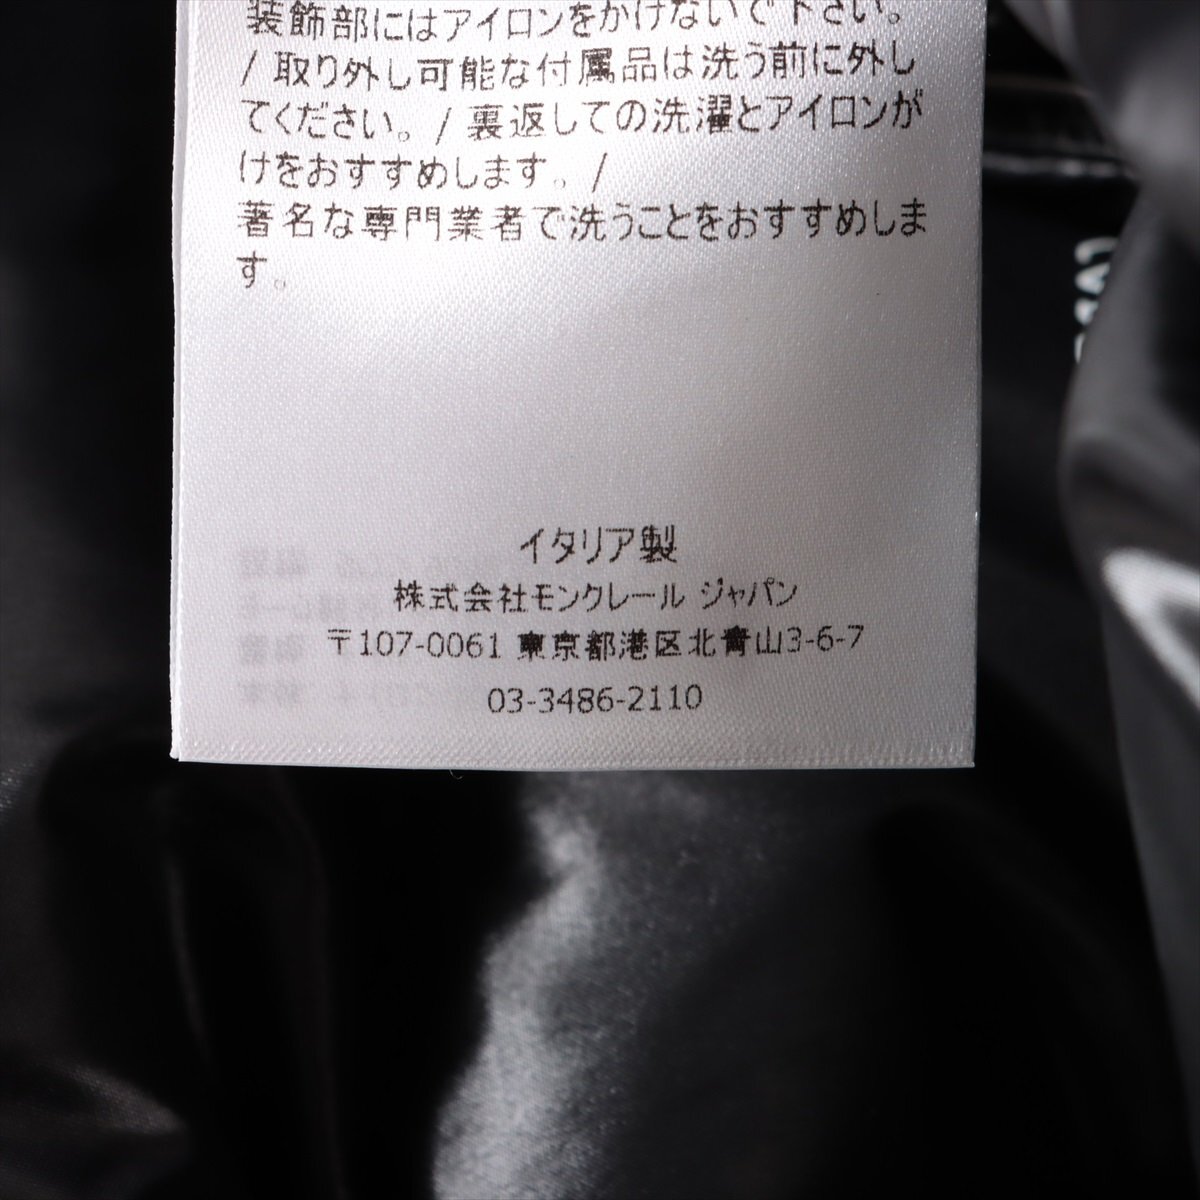 装飾部にはアイロンをかけないで下さい。
/ 取り外し可能な付属品は洗う前に外し
てください。/ 裏返しての洗濯とアイロンが
けをおすすめします。/
著名な専門業者で洗うことをおすすめしま
す。
イタリア製
株式会社モンクレール ジャパン
〒107-0061 東京都港区北青山3-6-7
03-3486-2110